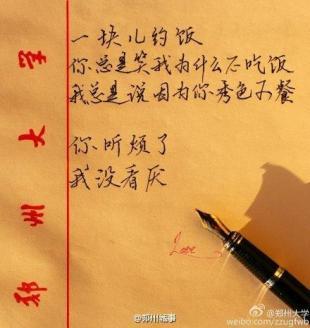 一块儿约饭
你总是笑我为什么不吃饭
我总是说因为你秀色可餐
你听烦了
我没看厌
郑州大学
Love
@郑州城事
@郑州大学
weibo.com/zzugfwb